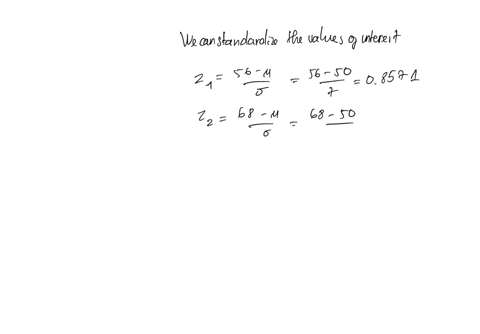 We can standardize the values of interest
z₁ = (56 - μ)/σ = (56 - 50)/7 = 0.8571
z₂ = (68 - μ)/σ = 68 - 50